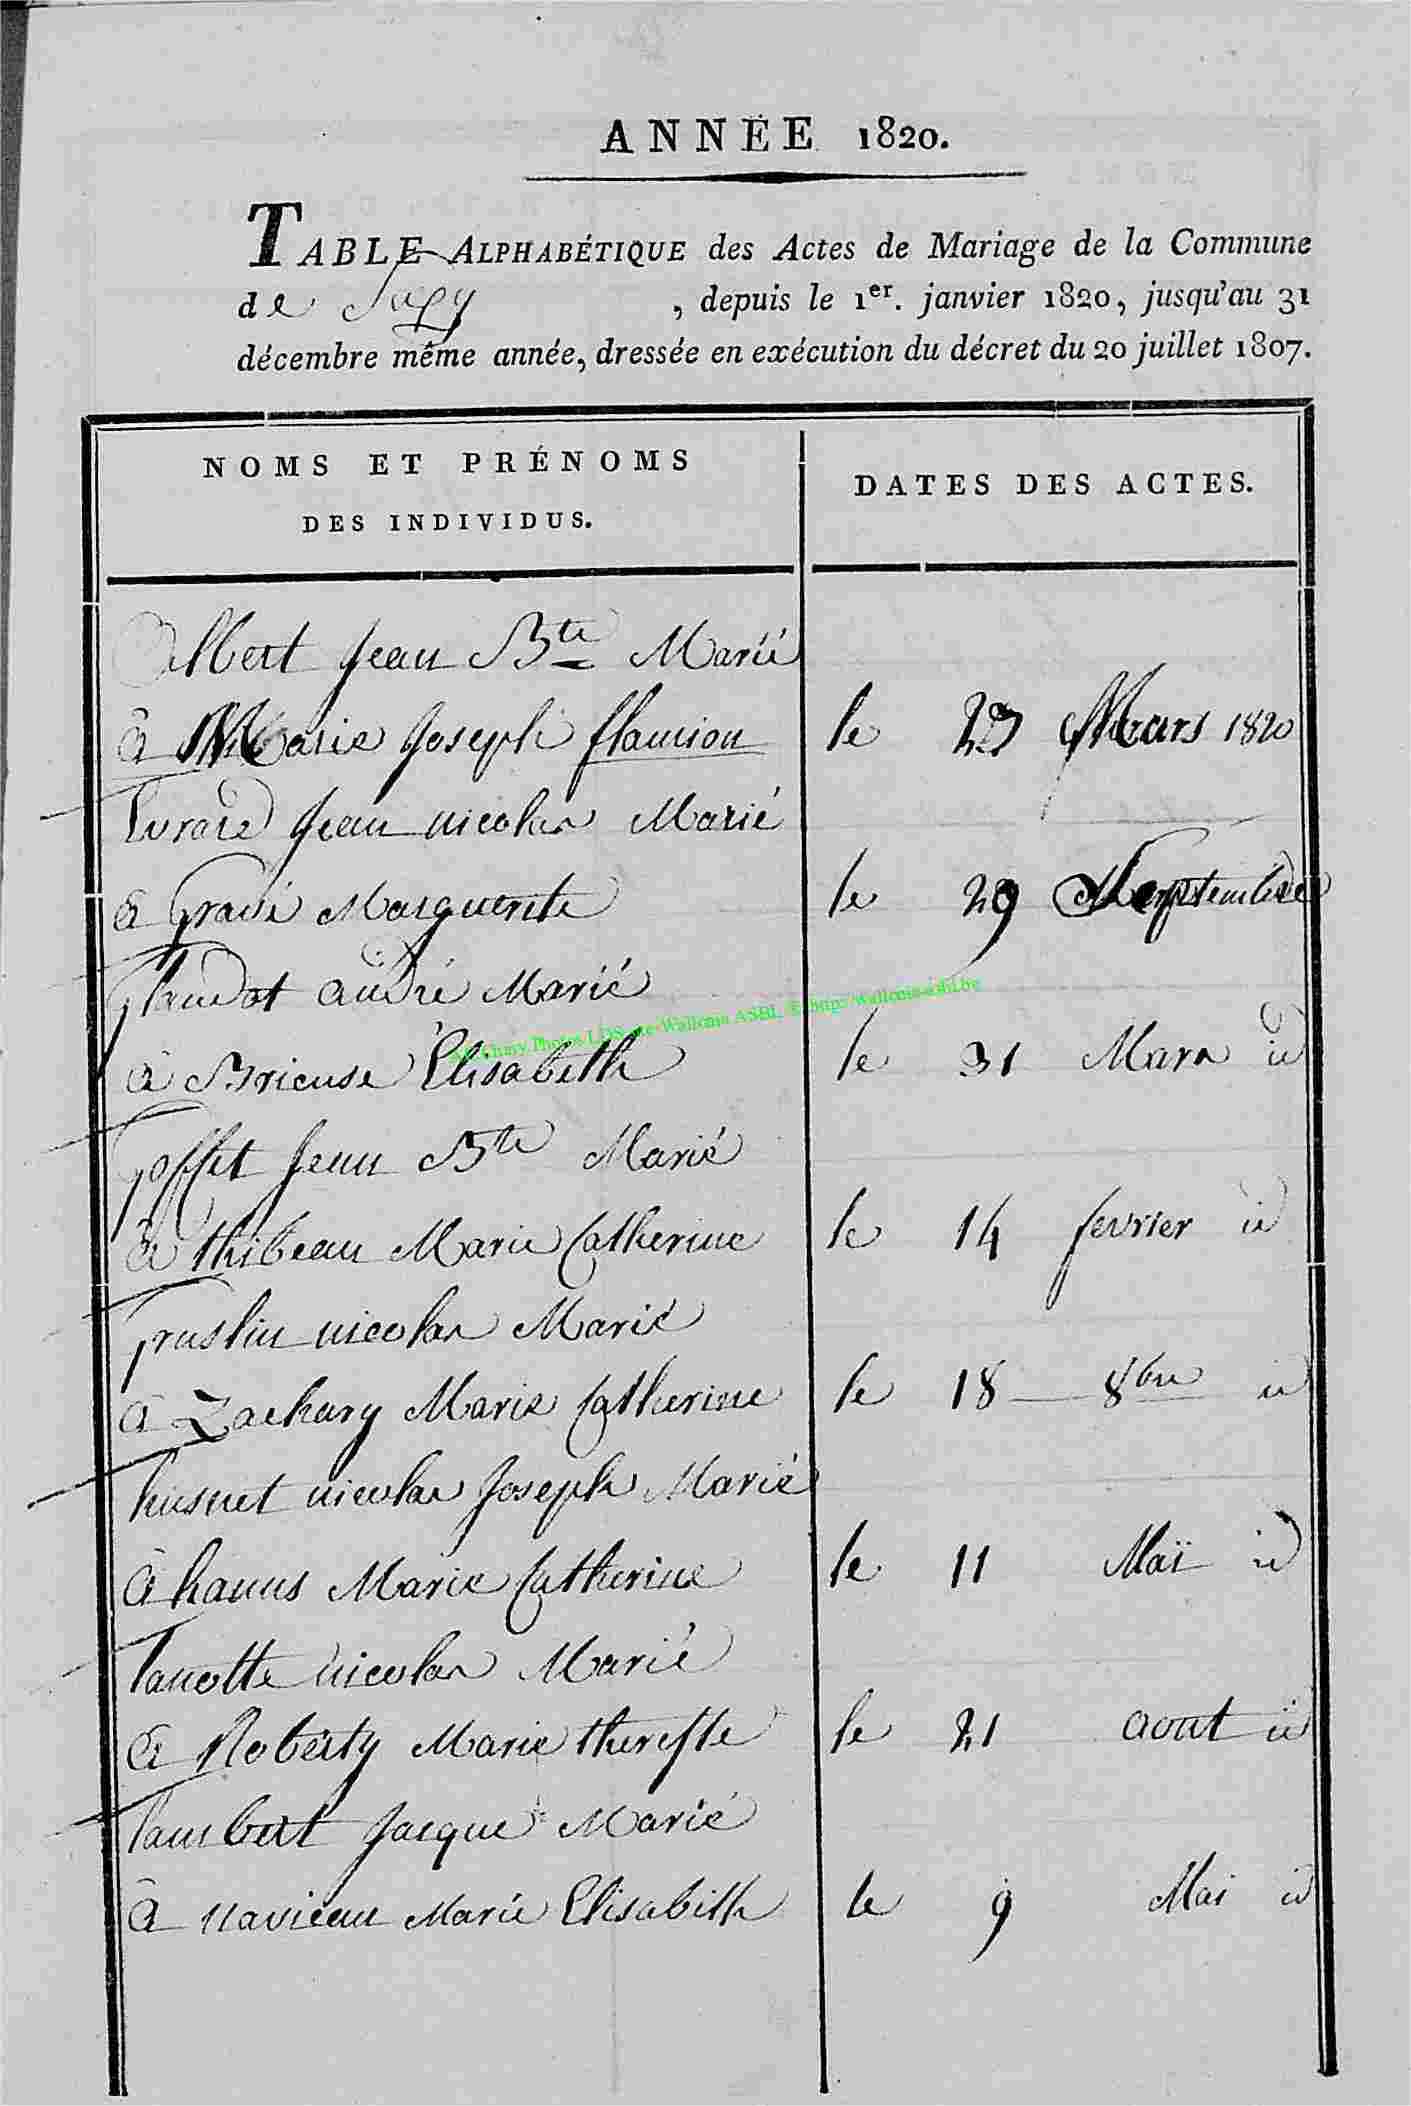 ANNÉE 1820.
TABLE ALPHABÉTIQUE des Actes de Mariage de la Commune
de , depuis le 1er. janvier 1820, jusqu'au 31
décembre même année, dressée en exécution du décret du 20 juillet 1807.
NOMS ET PRÉNOMS
DES INDIVIDUS.
DATES DES ACTES.
Albert Jean Bte Marié
à Marie Joseph flamion le Mars 1820
Jean nicolas Marié
à Marguerite le 29 Septembre
glaudot andré Marié
Photos LDS Wallonia ASBL © http: wallonia-asbl.be
à Brieuse Élisabeth le 31 Mars id
goffet Jean Bte Marié
à thibeau Marie Catherine le 14 fevrier id
gruslin nicolas Marié
à Zachary Marie Catherine le 18 8bre id
husnet nicolas Joseph Marié
à hanus Marie Catherine le 11 Maï id
lanotte nicolas Marié
à Roberty Marie theresse le 21 aout id
lambert Jacque Marié
à naviceau Marie Elisabeth le 9 Mai id